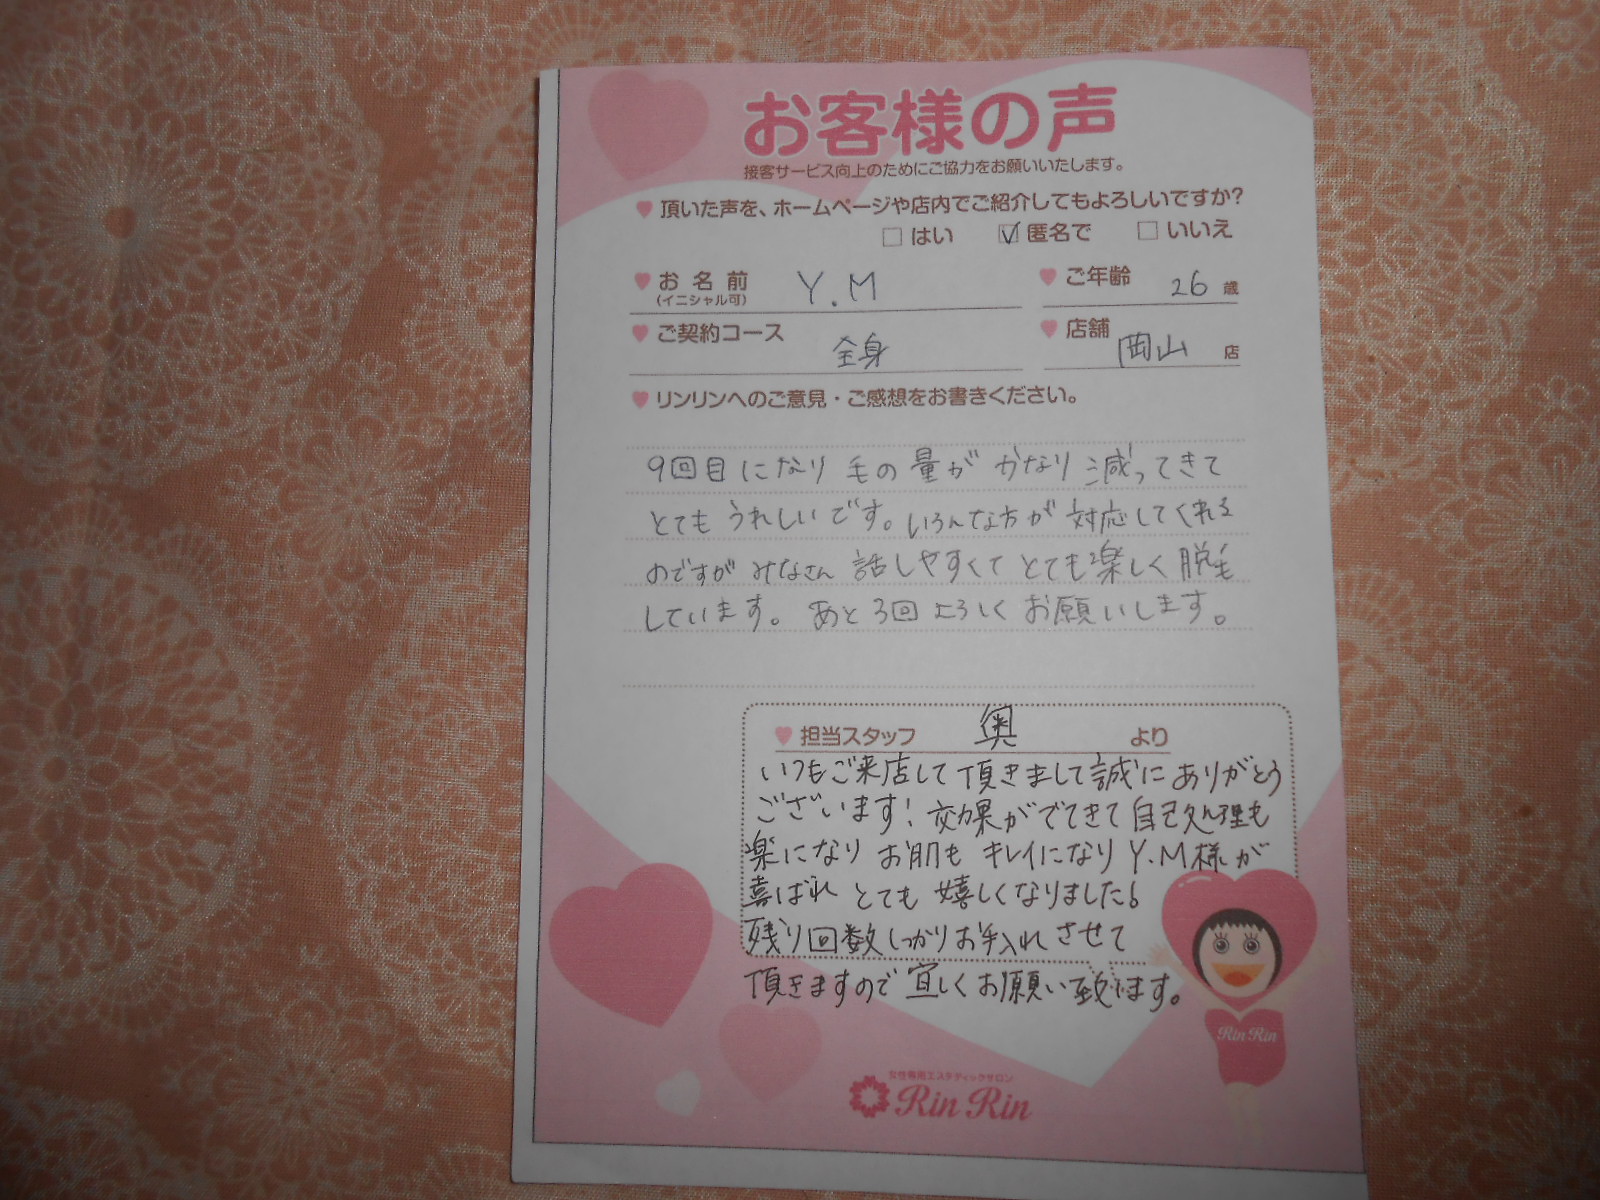 お客様の声
接客サービス向上のためにご協力をお願いいたします。
頂いた声を、ホームページや店内でご紹介してもよろしいですか?
はい 匿名で いいえ
お名前 Y.M ご年齢 26 歳
(イニシャル可)
ご契約コース 全身 店舗 岡山 店
リンリンへのご意見・ご感想をお書きください。
9回目になり 毛の量が かなり減ってきて
とてもうれしいです。いろんな方が対応してくれる
のですが みなさん 話しやすくてとても楽しく脱毛
しています。 あと3回よろしくお願いします。
担当スタッフ 奥 より
いつもご来店して頂きまして誠にありがとう
ございます! 効果がでてきて自己処理も
楽になり お肌も キレイになり Y.M様が
喜ばれ とても 嬉しくなりました!
残り回数しっかりお手入れさせて
頂きますので 宜しくお願い致します。
Rin Rin
女性専用エステティックサロン
Rin Rin